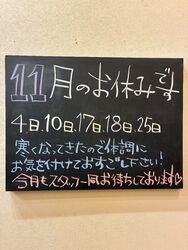 11月のお休みです
4日.10日.17日.18日.25日
寒くなってきたので体調に
お気を付けておすごし下さい!
今月もスタッフ一同お待ちしております♡